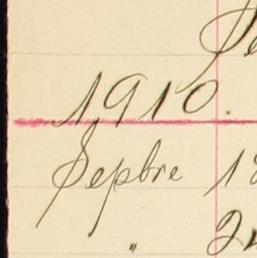 1910.
Sepbre 18
" 2